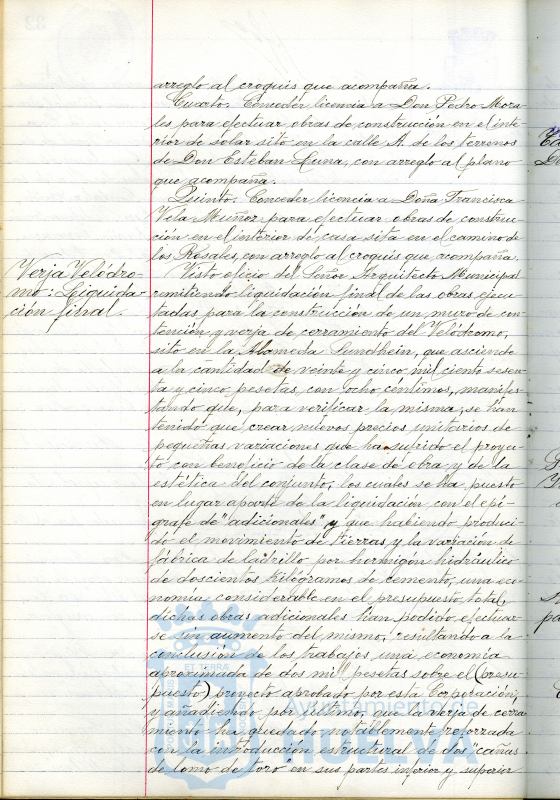 arreglo al croquis que acompaña.
Cuarto. Conceder licencia a Don Pedro Mora-
les para efectuar obras de construcción en el inte-
rior de solar sito en la calle A. de los terrenos
de Don Esteban Luna, con arreglo al plano
que acompaña.
Quinto. Conceder licencia a Doña Francisca
Vela Muñoz para efectuar obras de construc-
ción en el interior de casa sita en el camino de
los Rosales, con arreglo al croquis que acompaña.
Verja Velódro-
mo: Liquida-
ción final.
Visto oficio del Señor Arquitecto Municipal
remitiendo liquidación final de las obras ejecu-
tadas para la construcción de un muro de con-
tención y verja de cerramiento del Velódromo,
sito en la Alameda Sundhein, que asciende
a la cantidad de veinte y cinco mil ciento sesen-
ta y cinco pesetas, con ocho céntimos, manifes-
tando que, para verificar la misma, se han
tenido que crear nuevos precios unitarios de
pequeñas variaciones que ha sufrido el proyec-
to con beneficio de la clase de obra y de la
estética del conjunto, los cuales se ha puesto
en lugar aparte de la liquidación con el epí-
grafe de "adicionales" y que habiendo produci-
do el movimiento de tierras y la variación de
fábrica de ladrillo por hormigón hidráulico
de doscientos kilógramos de cemento, una eco-
nomía considerable en el presupuesto total,
dichas obras adicionales han podido efectuar-
se sin aumento del mismo, resultando a la
conclusión de los trabajos una economía
aproximada de dos mil pesetas sobre el (presu-
puesto) proyecto aprobado por esta Corporación;
y añadiendo por último, que la verja de cerra-
miento ha quedado notablemente reforzada
con la introducción estructural de dos "cañas
de lomo de toro" en sus partes inferior y superior
ET TERRÆ
Ayuntamiento de
HUELVA